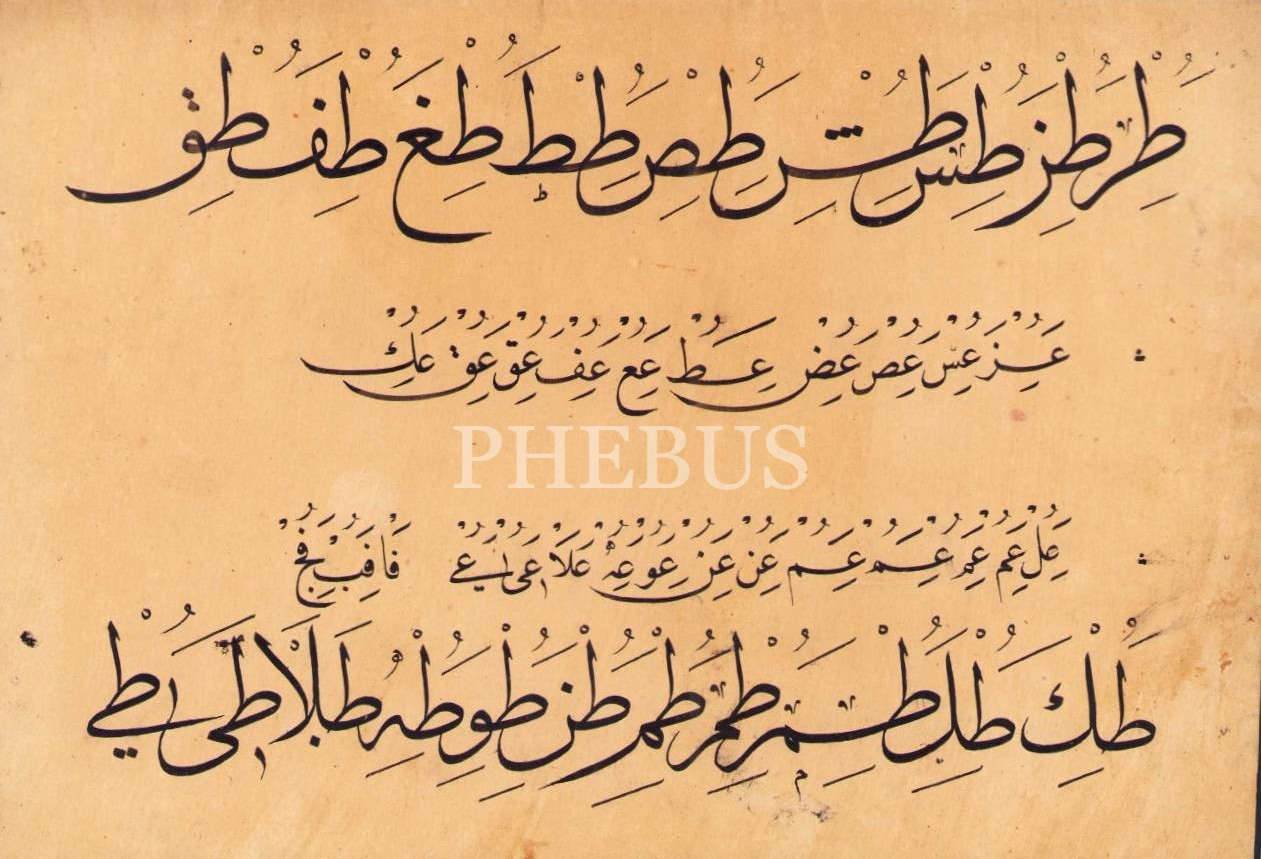 طر طز طس طش طص طط ط طغ طف طق
عز عس عص عض عط عع عف عق عق عك
عل عم عم عم عم عن عن عو عه علا عى عے فا فب فج
PHEBUS
طك طل طم طم طم طن طو طه طلا طى طے